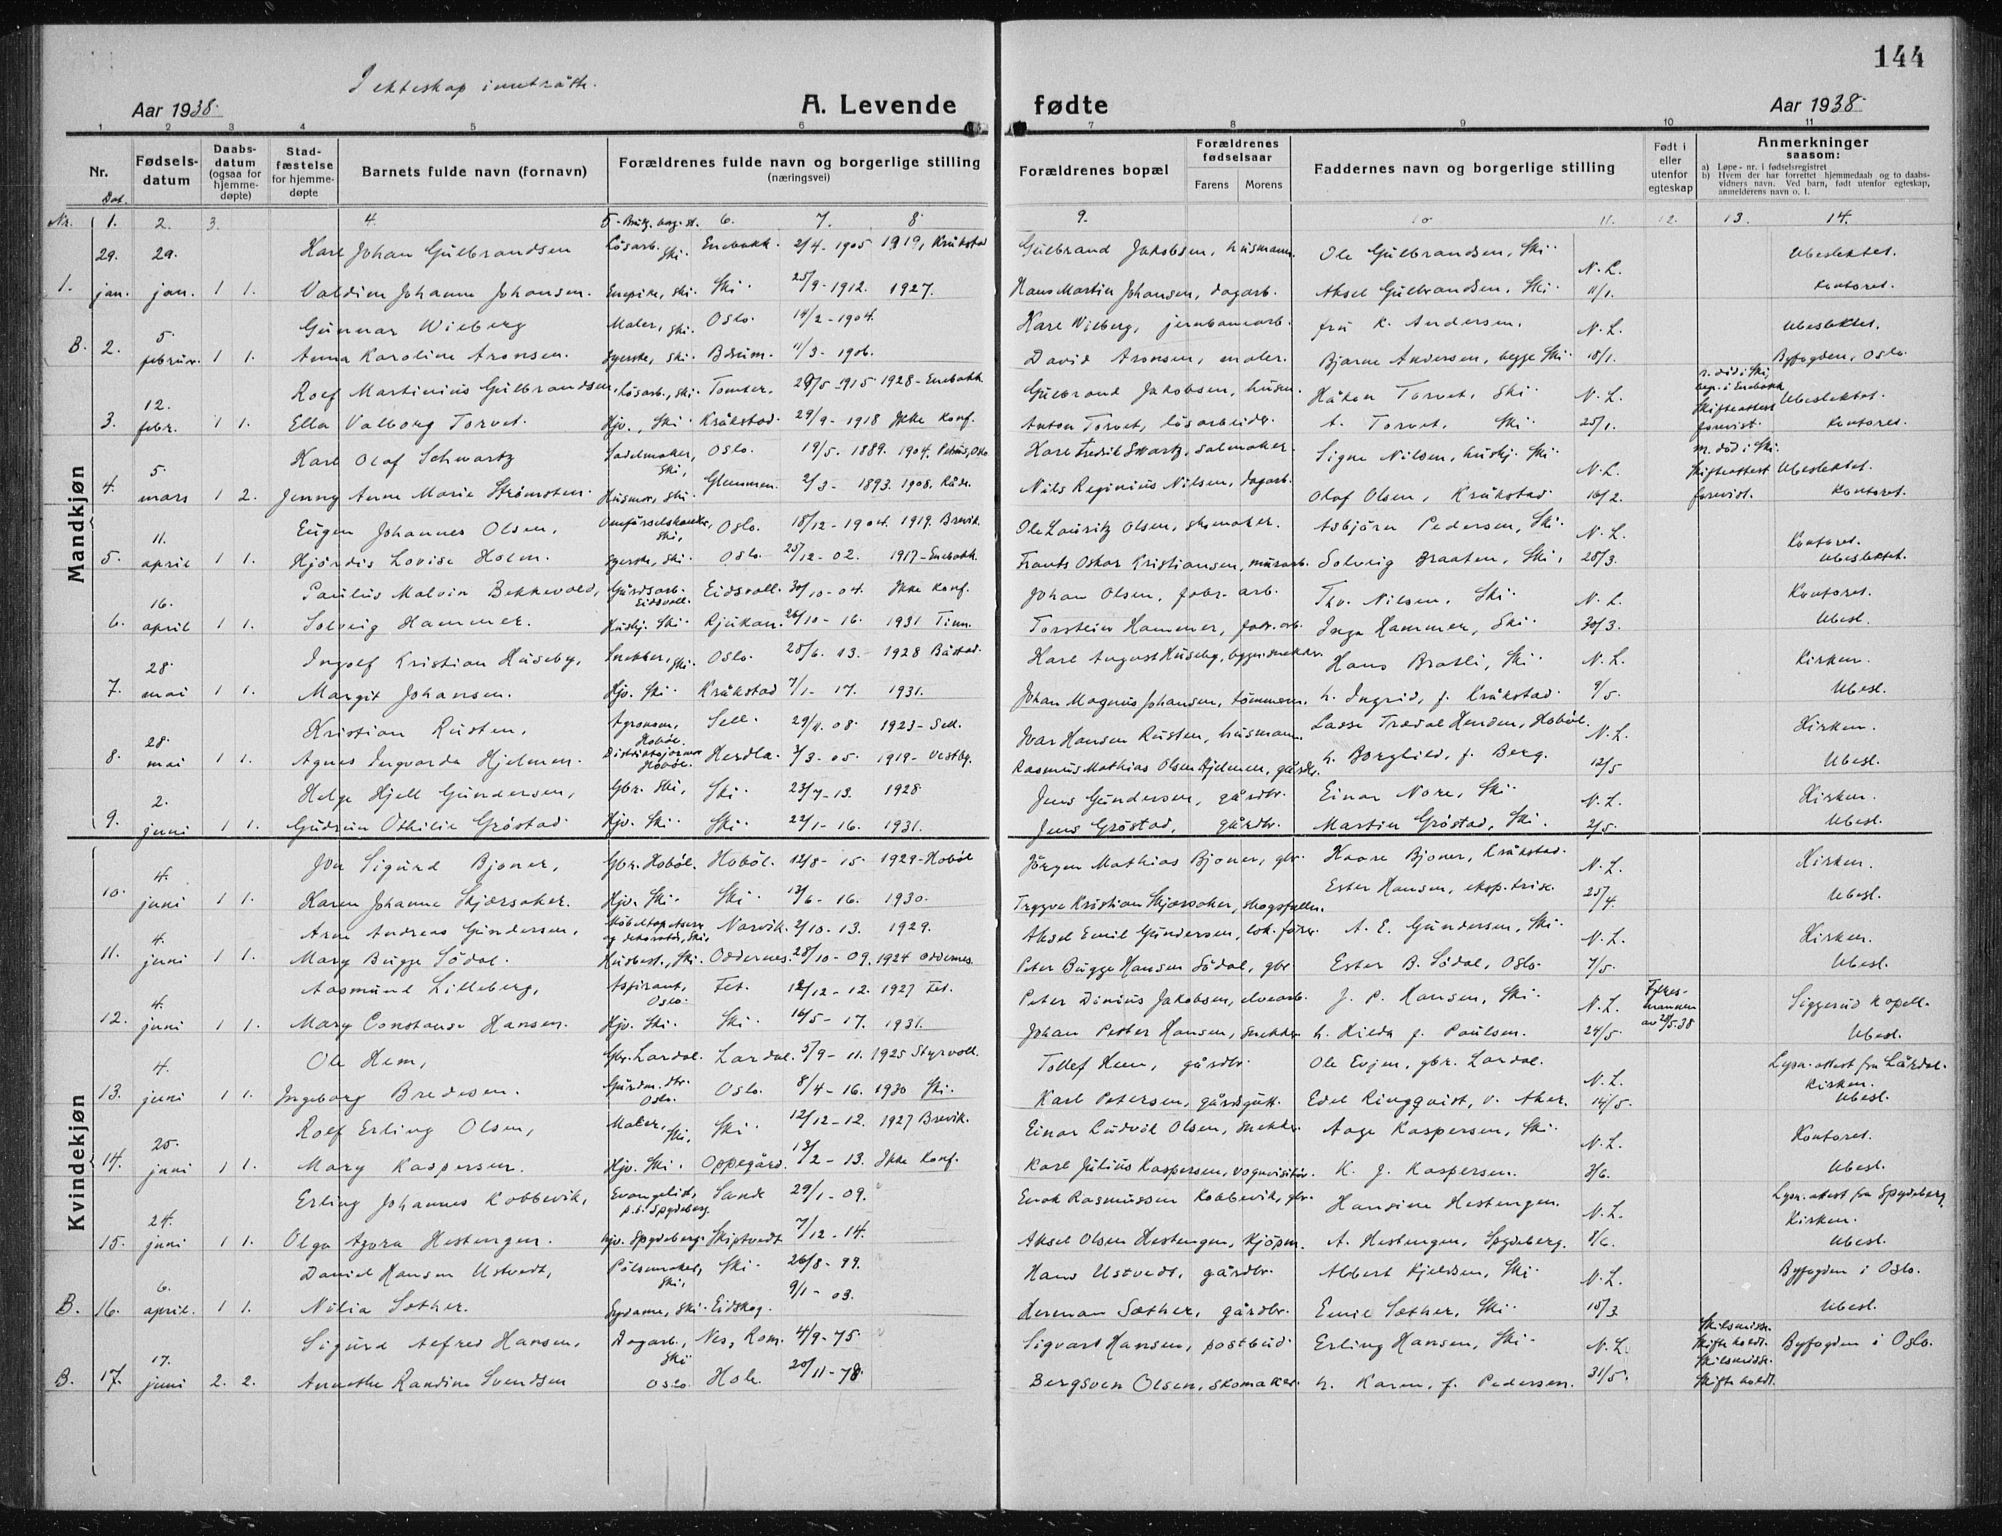 144
I ekteskap inntrådte.
Aar 1938. A. Levende fødte Aar 1938.
1 2 3 4 5 6 7 8 9 10 11
Nr. Fødselsdatum Daabsdatum (ogsaa for hjemmedøpte) Stadfæstelse for hjemmedøpte Barnets fulde navn (fornavn) Forældrenes fulde navn og borgerlige stilling (næringsvei) Forældrenes bopæl Forældrenes fødselsaar Farens Morens Faddernes navn og borgerlige stilling Født i eller utenfor egteskap Anmerkninger saasom:
a) Løpe-nr. i fødselsregistret
b) Hvem der har forrettet hjemmedaab og to daabsvidners navn. Ved barn, født utenfor egteskap, anmelderens navn o. l.
Nr. Dat. 1. 2. 3. 4. 6. 7. 8 9. 10 11. 12. 13. 14.
29. 29. Karl Johan Gulbrandsen Løsarb. Ski. Enebakk 2/4 - 1905 1919, Kråkstad Gulbrand Jakobsen, husmann. Ole Gulbrandsen, Ski. N.L. Ubeslektet.
1. jan. jan. 1 1. Valdine Johanne Johansen. Enepike, Ski. Ski. 25/9 - 1912. 1927. Hans Martin Johansen, dagarb. Aksel Gulbrandsen, Ski. 11/1. Kontoret.
5. Gunnar Wieberg Maler, Ski. Oslo. 14/2 - 1904. Karl Wieberg, jernbanearb. fru K. Andersen, N.L. Ubeslektet.
B. 2. februar. 1 1. Anna Karoline Aronsen. Syerske, Ski. Bærum. 11/3 - 1906. David Aronsen, maler. Bjarne Andersen, begge Ski. 18/1. Byfogden, Oslo.
12. Rolf Martinius Gulbrandsen, Løsarb., Ski. Tomter. 29/5 - 915 1928 - Enebakk Gulbrand Jakobsen, husm. Håkon Torvet, Ski. N.L. Ubeslektet.
3. febr. 1 1. Ella Valborg Torvet. Hjv., Ski. Kråkstad. 29/9 - 1918 Ikke konf. Anton Torvet, løsarbeider. A. Torvet, Ski. 25/1. Skifteattest forevist. Kontoret.
5. Karl Olaf Schwartz Sadelmaker, Ski, Oslo. 19/5. 1889. 1904. Petrus, Oslo Karl Fredrik Swartz, salmaker. Signe Nilsen, huskj. Ski. N.L. m. død i Ski. Skifteattest Ubeslektet.
4. mars 1 2. Jenny Anne Marie Strømsten. Husmor, Ski. Glemmen. 2/3 - 1893. 1908. Råde. Nils Reginius Nilsen, dagarb. Olaf Olsen, Kråkstad. 16/2. forevist. Kontoret.
11. Eugen Johannes Olsen, Ski, Oslo. 18/12 - 1904. 1919. Brevik. Ole Lauritz Olsen, skomaker. Asbjørn Pedersen, Ski. N.L. Kontoret.
5. april 1 1. Hjørdis Lovise Holm. Syerske, Ski. Oslo. 25/12 - 02. 1917 - Enebakk. Frants Oskar Kristiansen, murarb. Solveig Braaten, Ski, 28/3. Ubeslektet.
16. Paulus Malvin Bekkevold, Gårdsarb. Eidsvoll. Eidsvoll. 30/10 - 04. Ikke konf. Johan Olsen, fabr. arb. Thv. Nilsen, Ski. N.L. Kontoret.
6. april 1 1. Solveig Hammer. Huskj. Ski. Rjukan. 26/10 - 16. 1931 Tinn. Torstein Hammer, fabr. arb. Inga Hammer, Ski. 30/3. Ubesl.
28. Ingolf Kristian Huseby, Snekker, Ski. Oslo. 28/6. 13. 1928 Båstad. Karl August Huseby, byggm. snekker. Hans Bratli, Ski. N.L. Kirken.
7. mai 1 1. Margit Johansen. Hjv. Ski. Kråkstad 7/1 - 17. 1931. Johan Magnus Johansen, tømmerm. h. Ingrid, f. Kråkstad. 9/5. Ubesl.
28. Kristian Rusten, Agronom, Hobøl. Sell. 29/11. 08. 1923 - Sell. Ivar Hansen Rusten, husmann. Lasse Trædal Henden, Hobøl. N.L. Kirken.
8. mai 1 1. Agnes Ingvarda Hjelmen. Distriktsjormor Hobøl. Herdla. 3/3 - 05. 1919 - Vestbg. Rasmus Mathias Olsen Hjelmen, gårdbr. h. Borghild, f. Berg. 12/5 Ubesl.
2. Helge Kjell Gundersen, Gbr. Ski, Ski. 23/7 - 13. 1928. Jens Gundersen, gårdbr. Einar Nore, Ski. N.L. Kirken.
9. juni 1 1. Gudrun Othilie Grøstad. Hjv. Ski. Ski. 22/1 - 16. 1931. Jens Grøstad, gårdbr. Martin Grøstad, Ski. 2/5. Ubesl.
4. Iver Sigurd Bjoner, Gbr. Hobøl. Hobøl. 12/8 - 15. 1929 - Hobøl Jørgen Mathias Bjoner, gbr. Haare Bjoner, Kråkstad. N.L. Kirken.
10. juni 1 1. Karen Johanne Skjærsaker. Hjv. Ski. Ski. 13/6 - 16. 1930. Trygve Kristian Skjærsaker, skogsfullm. Ester Hansen, eksp. trise. 25/4. Ubesl.
4. Arne Andreas Gundersen, Møbeltapetserer og dekoratør, Ski, Narvik. 2/10. 13. 1929. Aksel Emil Gundersen, lok. fører. A. E. Gundersen, Ski. N.L. Kirken.
11. juni 1 1. Mary Bugge Sødal. Husbest., Ski. Oddernes. 28/10 - 09. 1924 Oddernes. Peter Bugge Hansen Sødal, gbr. Ester B. Sødal, Oslo. 7/5. Ubesl.
4. Aasmund Lilleberg, Aspirant, Oslo. Fet. 12/12 - 12. 1927 Fet. Peter Dinius Jakobsen, elvearb. J. P. Hansen, Ski. N.L. Fylkesmannen Siggerud kapell.
12. juni 1 1. Mary Constanse Hansen. Hjv. Ski. Ski. 16/5 - 17. 1931. Johan Petter Hansen, snekker h. Hilda f. Paulsen. 24/5. av 21/5.38 Ubesl.
4. Ole Hem, Gbr. Lardal. Lardal. 5/9 - 11. 1925 Styrvoll. Tollef Hem, gårdbr. Ole Evjen, gbr. Lardal. N.L. Lysn. attest fra Lårdal. Kirken.
13. juni 1 1. Ingeborg Bredesen. Gårdm. dtr. Oslo. Oslo. 8/4 - 16. 1930 Ski. Karl Petersen, gårdsgutt. Edel Ringqvist, v. Aker. 14/5. Ubesl.
25. Rolf Erling Olsen, Maler, Ski, Ski. 12/12 - 12. 1927 Brevik. Einar Ludvik Olsen, snekker. Aage Kaspersen, Ski. N.L. Kontoret.
14. juni 1 1. Mary Kaspersen. Hjv. Ski. Oppegård. 13/2 - 13. Ikke konf. Karl Julius Kaspersen, vognvisitør. K. J. Kaspersen. 3/6. Ubesl.
24. Erling Johannes Kobbevik, Evangelist, p.t. Spydeberg. Sande 29/1 - 09. Enok Rasmussen Kobbevik, gbr. Hansine Hestengen. N.L. Lysn. attest fra Spydeberg, Kirken.
15. juni 1 1. Olga Agora Hestengen. hjv. Spydeberg. Skiptvedt 7/12 - 14. Aksel Olsen Hestengen, kjøpm. A. Hestengen, Spydeberg. 3/6. Ubesl.
6. Daniel Hansen Ustvedt, Pølsemaker, Ski, Ski. 26/8 - 99. Hans Ustvedt, gårdbr. Albert Kjeldsen, Ski N.L. Byfogden i Oslo.
B. 16. april. 1 1. Nilia Sæther. Sydame, Ski. Eidskog. 9/1 - 03. Herman Sæther, gårdbr. Emil Sæther, Ski. 15/3 Ubesl.
17. Sigurd Alfred Hansen, Dagarb., Ski Nes, Rom. 4/9 - 75. Sigvart Hansen, postbud Erling Hansen, Ski. N.L. Skilsmisse. Skifte holdt. Byfogden i Oslo.
B. 17. juni 2. 2. Annethe Randine Svendsen Oslo Hole 20/11 - 78. Bergsven Olsen, skomaker. h. Karen, f. Pedersen. 31/5. Skilsmisse. Skifte holdt.
Mandkjøn
Kvindekjøn